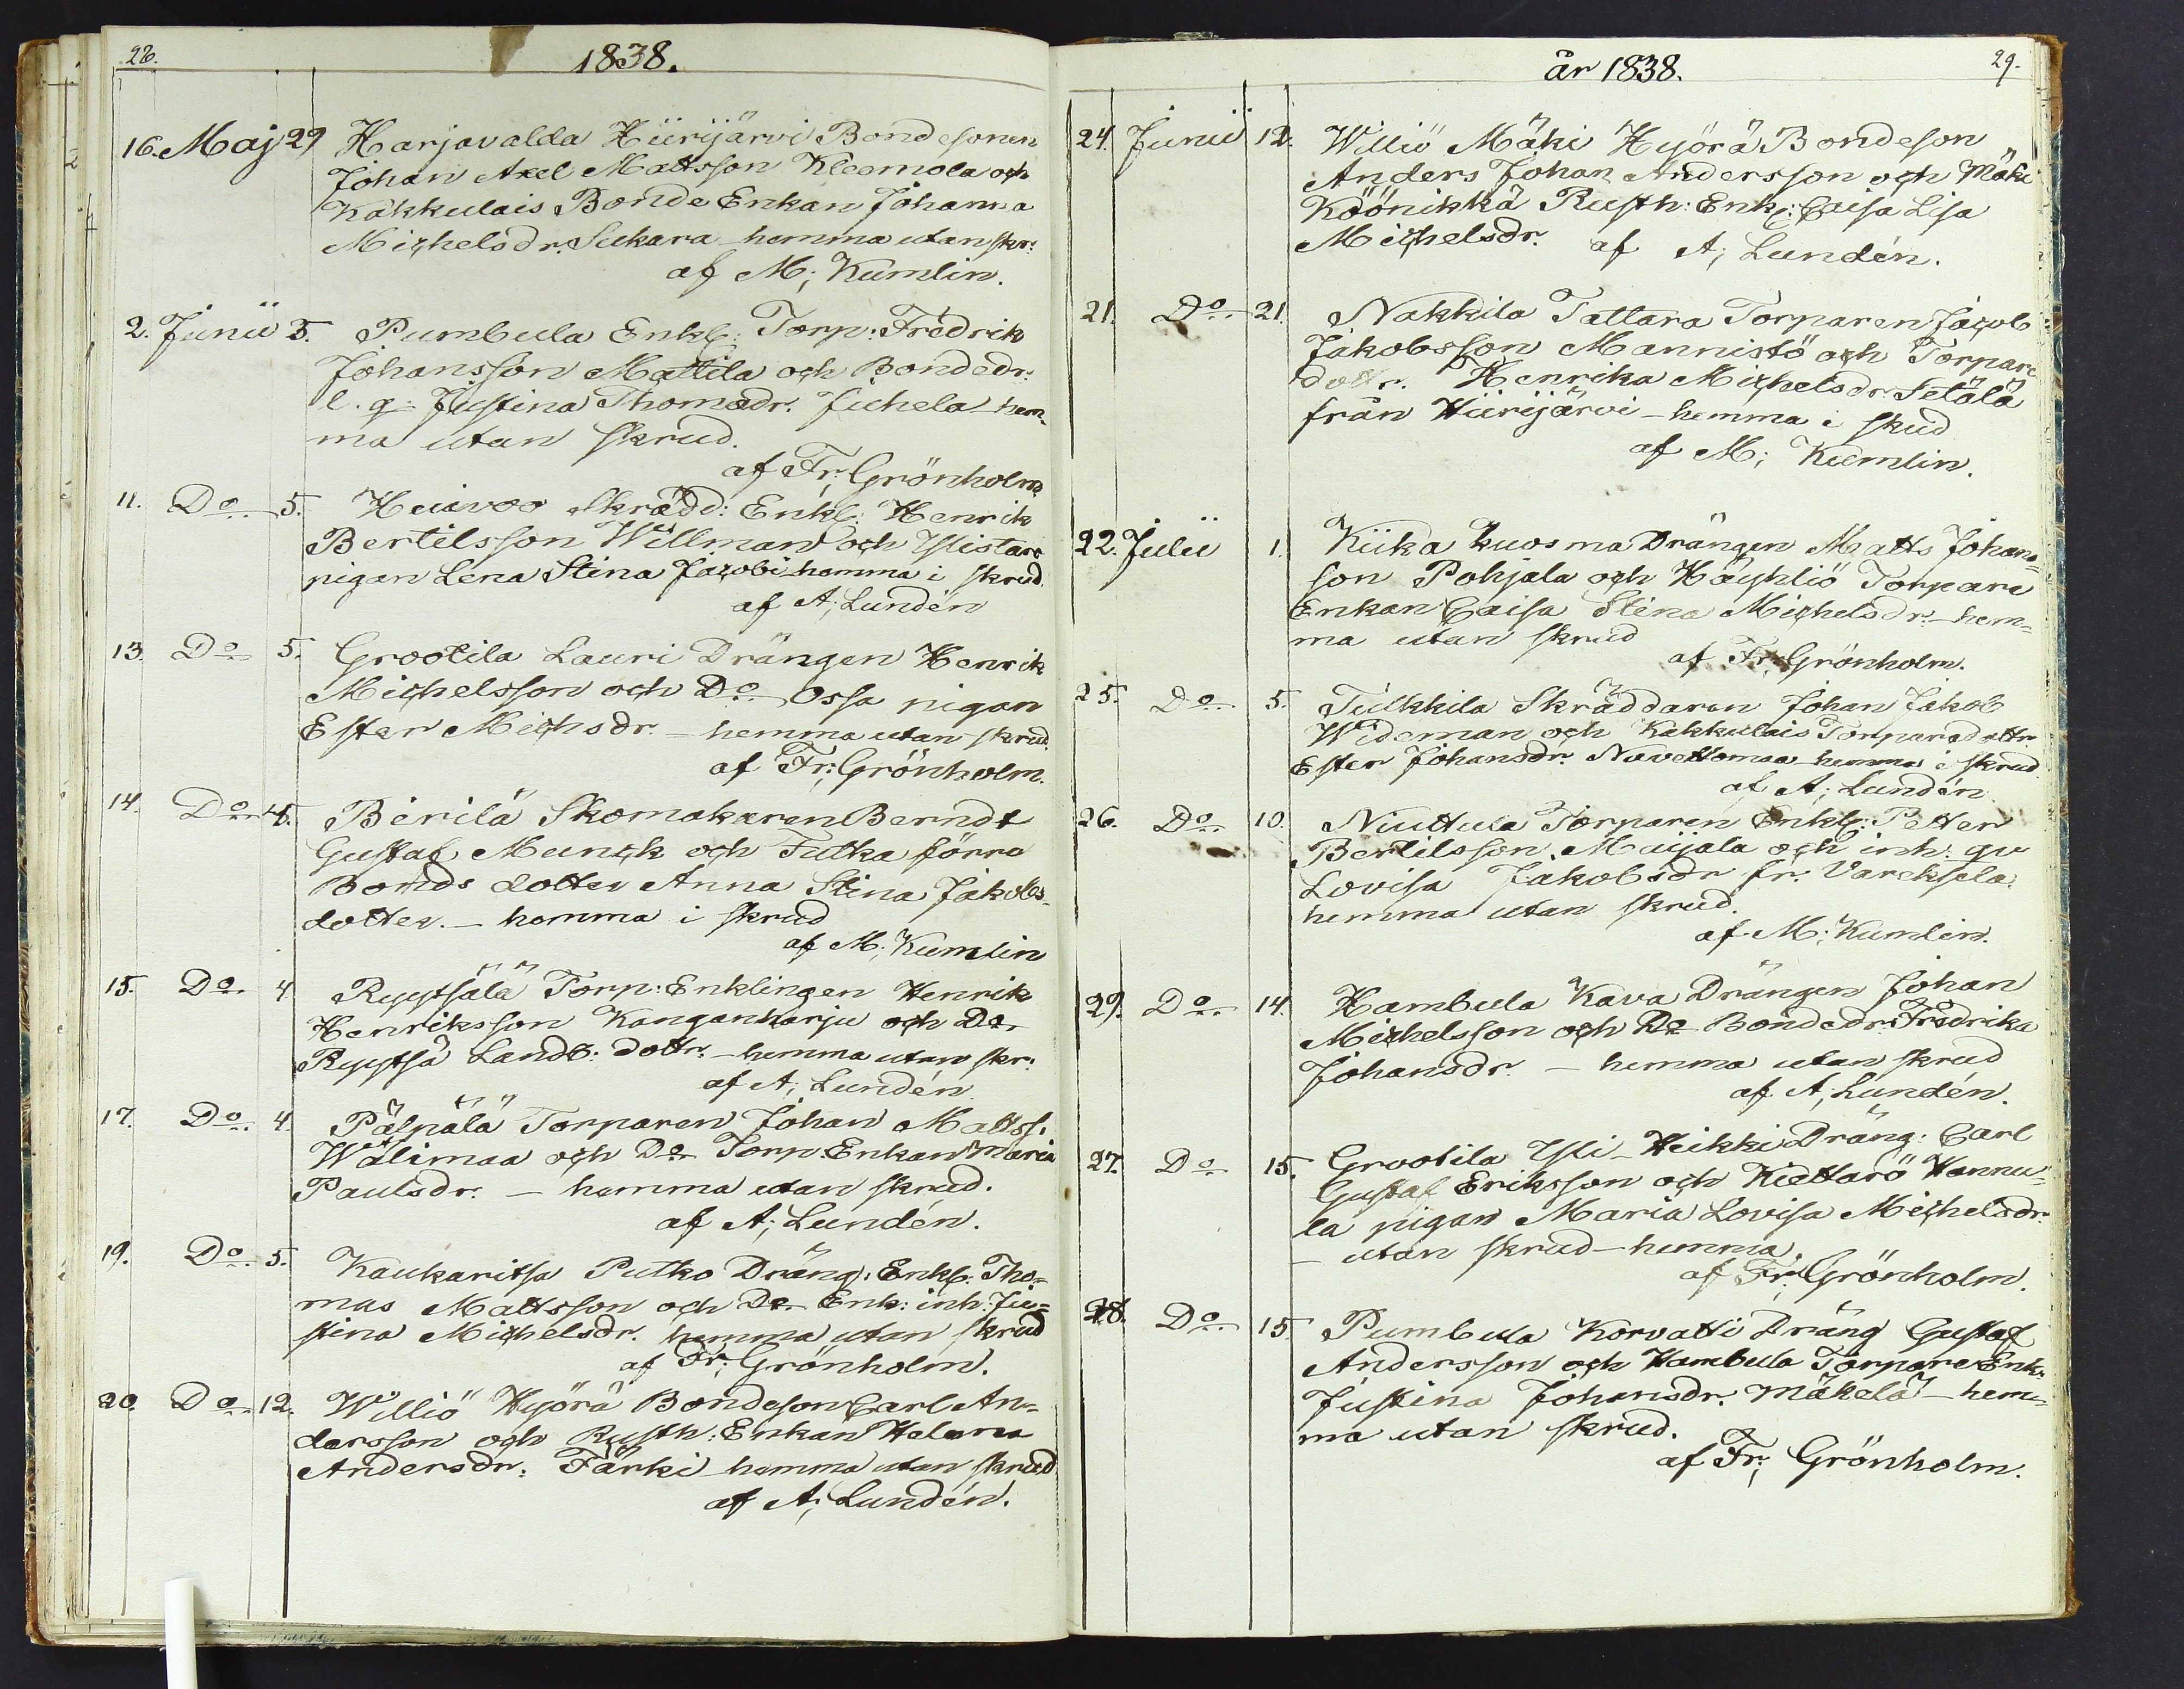 28.
1838.
16. Maj 29 Harjavalda Hiirijärvi Bondesonen
Johan Axel Mattsson Kleemola och
Kakkulais Bonde Enkan Johanna
Michelsdr. Sukara hemma utan skr:
af M; Kumlin.
2. Junii 3. Pumbula Enkl: Torp: Fredrik
Johansson Mattila och Bondedr:
l. q: Justina Thomædr. Juhela hem,
ma utan skrud.
af Fr; Grönholm
11. Do 5. Heiavoo Skrädd: Enkl: Henrik
Bertilsson Willman och Ylistaro
pigan Lena Stina Jacobi hemma i skrud.
af A; Lundén
13. Do 5. Grootila Lauri Drängen Henrik
Michelsson och Do Ossa pigan
Ester Michsdr. – hemma utan skrud.
af Fr; Grönholm.
14. Do 5. Berilä Skomakaren Berndt
Gustaf Munck och Tulka förra
Bonds dotter Anna Stina Jakobs
dotter. – hemma i skrud
af M; Kumlin
15. Do 4 Ryytsälä Torp: Enklingen Henrik
Henriksson Kanganharju och Do
Ryytsä Landb: dottr. – hemma utan skr:
af A; Lundén.
17. Do 4. Pälpälä Torparen Johan Matss.
Wälimaa och Do Torp: Enkan Maria
Paulsdr. – hemma utan skrud.
af A; Lundén.
19. Do 5. Kaukaritsa Putko Dräng: Enkl: Tho=
mas Mattsson och Do Enk: inh: Ju=
stina Michelsdr. hemma utan skrud
af Fr; Grönholm.
20. Do 12. Williö Hyörä Bondeson Carl An=
dersson och Rusth: Enkan Helena
Andersdr: Färki hemma utan skrud
af A; Lundén.
år 1838.
29.
24. Junii 12. Williö Mäki Hyörä Bondeson
Anders Johan Andersson och Mäki
Köönikkä Rusth: Enk: Caisa Lisa
Michelsdr. af A; Lundén.
21. Do 21. Nakkila Tattara Torparen Jacob
Jakobsson Mannistö och Torpare
dottr. Henrika Michelsdr Setälä
från Hiirijärvi – hemma i skud
af M; Kumlin.
22. Julii 1. Kiika Kuosma Drängen Matts Johans=
son Pohjala och Köyhliö Torpare
Enkan Caisa Stina Michelsdr. – hem=
ma utan skrud
af Fr; Grönholm.
25. Do 5. Tulkkila Skräddaren Johan Jakob
Wideman och Kakkulais Torparedottr.
Ester Johansdr. Navettomaa hemma i skrud
af A; Lundén
26. Do 10. Niuttula Torparen Enkl: Petter
Bertilsson Maijala och inh: qv
Lovisa Jakobsdr fr: Vareksela
hemma utan skrud.
af M; Kumlin.
29. Do 14. Hambula Kava Drängen Johan
Michelsson och Do Bondedr: Fredrika
Johansdr. – hemma utan skrud
af A; Lundén.
27. Do 15. Grootila Yli-Heikki Dräng: Carl
Gustaf Eriksson och Kiettarö Hannu=
la pigan Maria Lovisa Michelsdr.
– utan skrud – hemma.
af Fr; Grönholm.
28. Do 15. Pumbula Korvatti Dräng Gustaf
Andersson och Hambula Torpare Enk:
Justina Johansdr. Mäkelä – hem=
ma utan skrud.
af Fr; Grönholm.